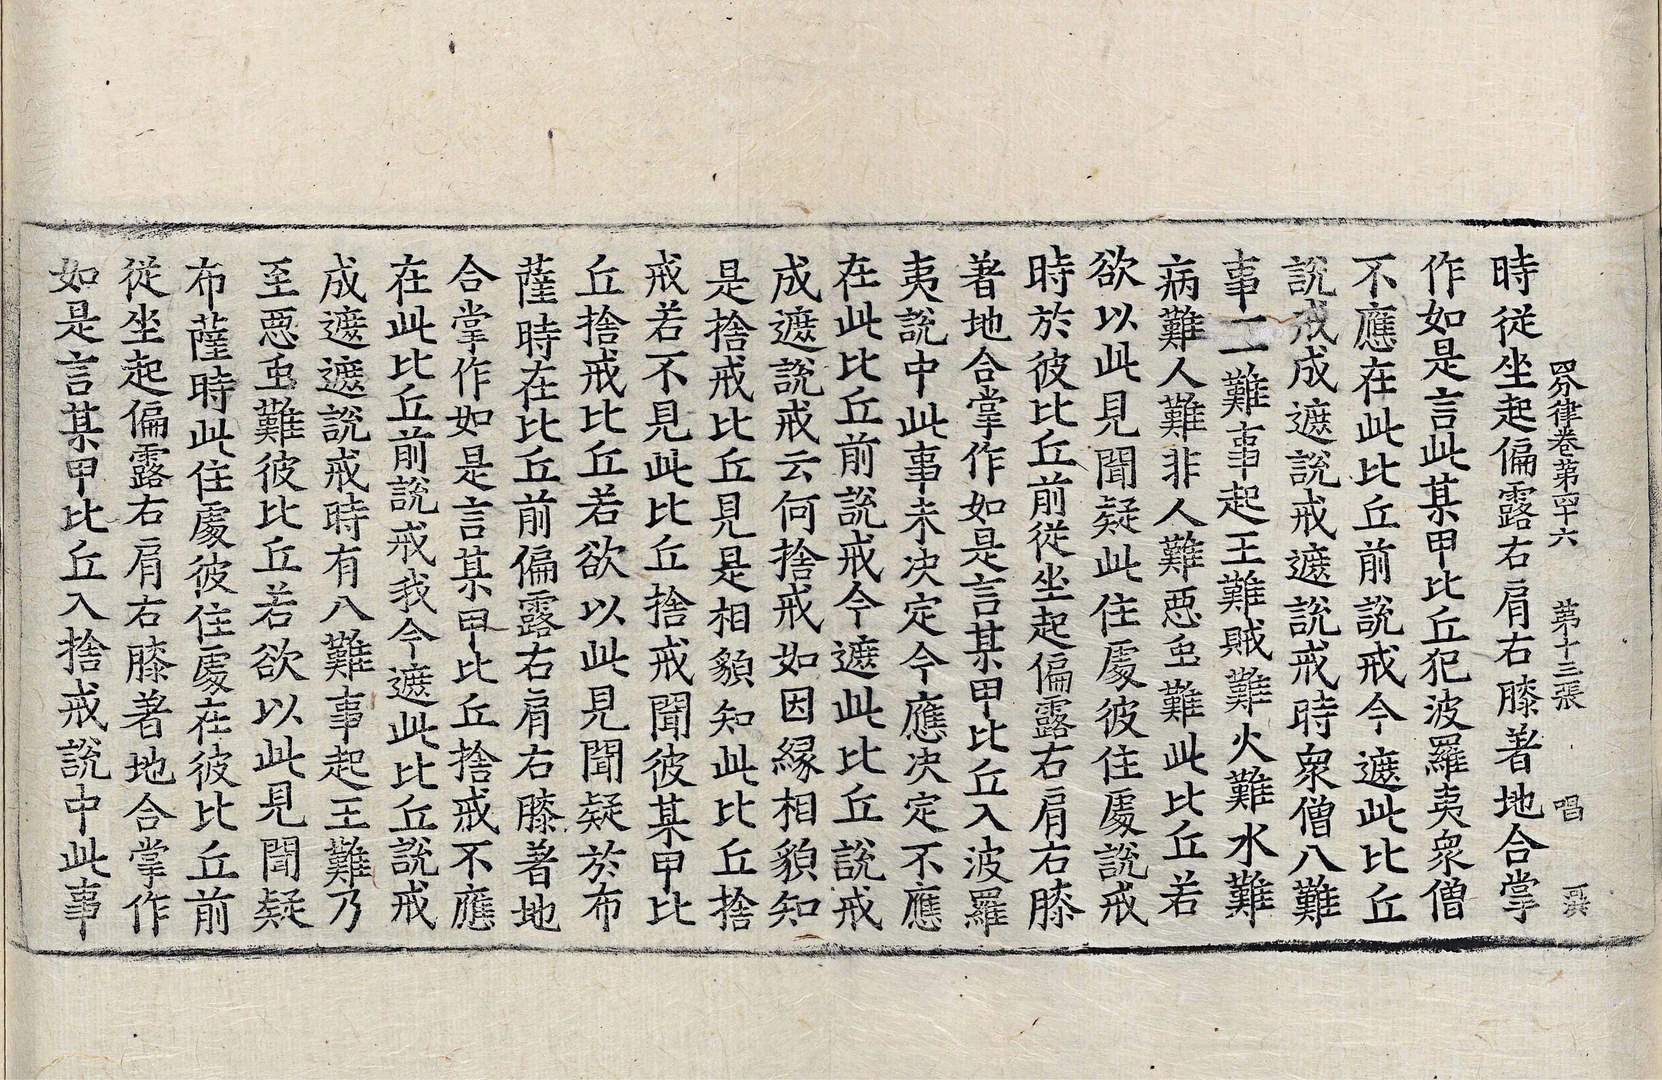 四分律卷第四十六 第十三張 唱
時從坐起偏露右肩右膝著地合掌
作如是言此某甲比丘犯波羅夷衆僧
不應在此比丘前說戒今遮此比丘
說戒成遮說戒遮說戒時衆僧八難
事一一難事起王難賊難火難水難
病難人難非人難惡虫難此比丘若
欲以此見聞疑此住處彼住處說戒
時於彼比丘前從坐起偏露右肩右膝
著地合掌作如是言某甲比丘入波羅
夷說中此事未决定今應决定不應
在此比丘前說戒今遮此比丘說戒
成遮說戒云何捨戒如因緣相貌知
是捨戒比丘見是相貌知此比丘捨
戒若不見此比丘捨戒聞彼某甲比
丘捨戒比丘若欲以此見聞疑於布
薩時在比丘前偏露右肩右膝著地
合掌作如是言某甲比丘捨戒不應
在此比丘前說戒我今遮此比丘說戒
成遮遮說戒時有八難事起王難乃
至惡虫難彼比丘若欲以此見聞疑
布薩時此住處彼住處在彼比丘前
從坐起偏露右肩右膝著地合掌作
如是言某甲比丘入捨戒說中此事